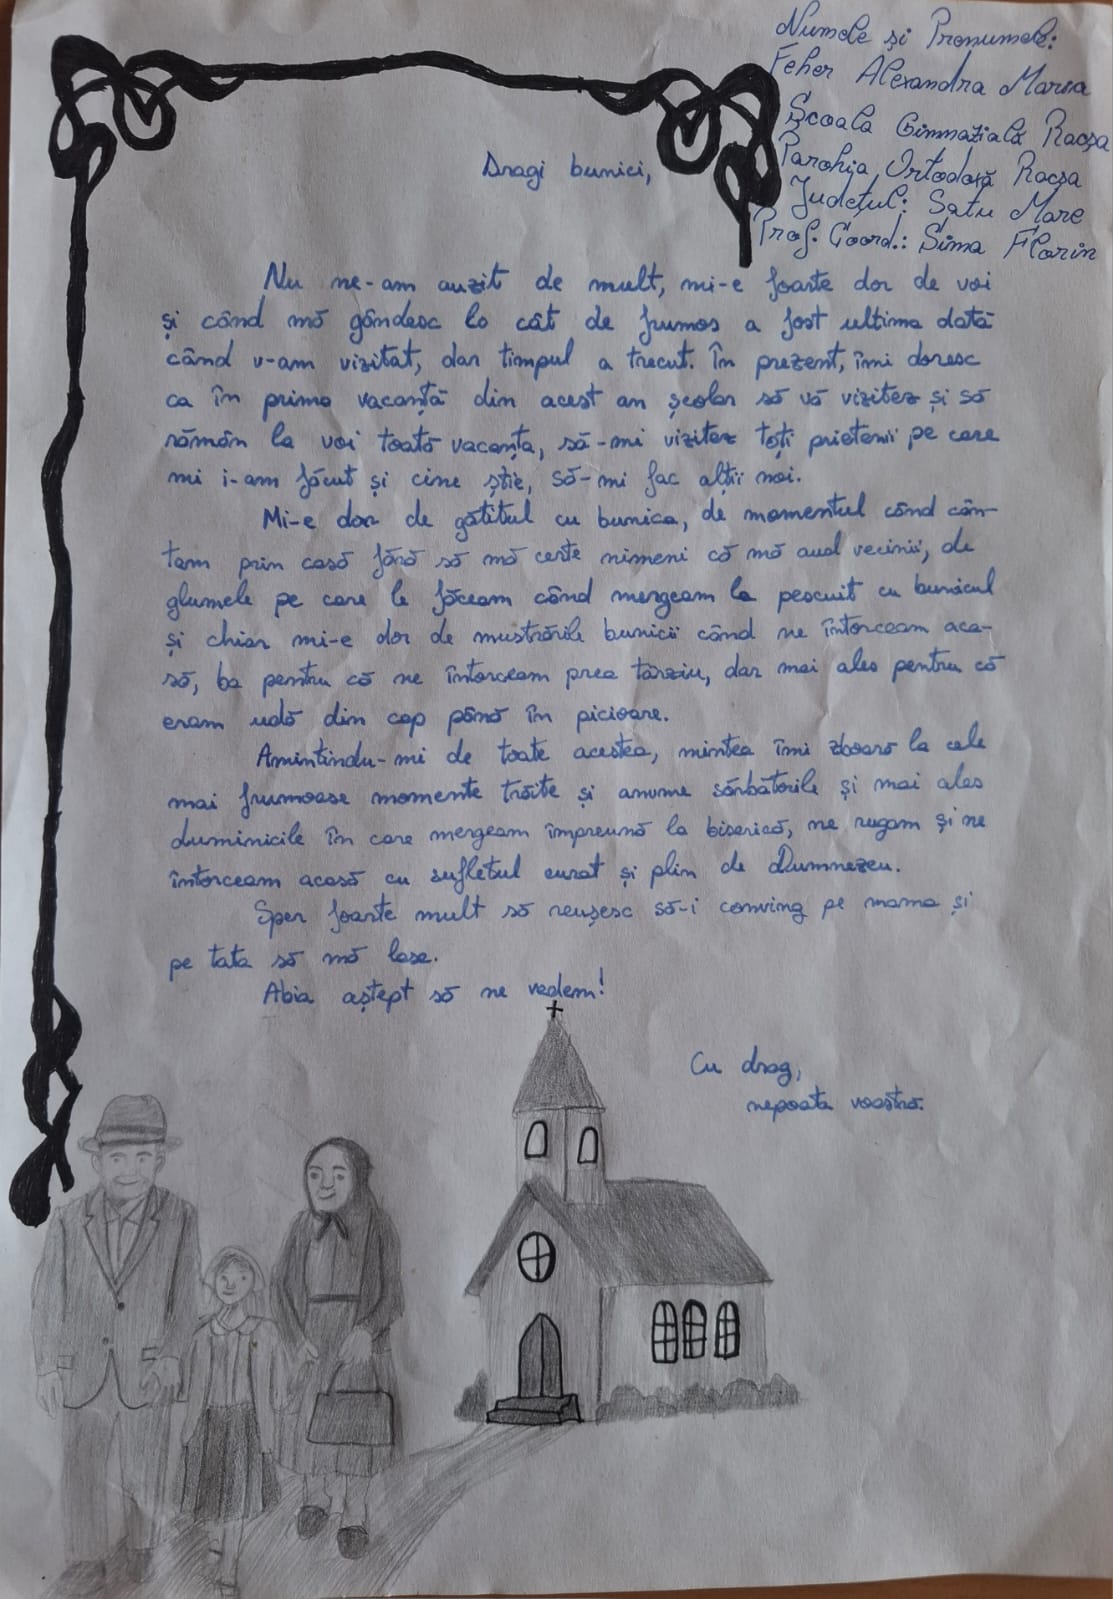 Numele și Pronumele:
Feher Alexandra Maria
Școala Gimnazială Racșa
Parohia Ortodoxă Racșa
Județul: Satu Mare
Prof. Coord.: Sima Florin
Dragi bunici,
Nu ne-am auzit de mult, mi-e foarte dor de voi
și când mă gândesc la cât de frumos a fost ultima dată
când v-am vizitat, dar timpul a trecut. În prezent, îmi doresc
ca în prima vacanță din acest an școlar să vă vizitez și să
rămân la voi toată vacanța, să-mi vizitez toți prietenii pe care
mi i-am făcut și cine știe, să-mi fac alții noi.
Mi-e dor de gătitul cu bunica, de momentul când cân-
tam prin casă fără să mă certe nimeni că mă aud vecinii, de
glumele pe care le făceam când mergeam la pescuit cu bunicul
și chiar mi-e dor de mustrările bunicii când ne întorceam aca-
să, ba pentru că ne întorceam prea târziu, dar mai ales pentru că
eram udă din cap până în picioare.
Amintindu-mi de toate acestea, mintea îmi zboară la cele
mai frumoase momente trăite și anume sărbătorile și mai ales
duminicile în care mergeam împreună la biserică, ne rugam și ne
întorceam acasă cu sufletul curat și plin de Dumnezeu.
Sper foarte mult să reușesc să-i conving pe mama și
pe tata să mă lase.
Abia aștept să ne vedem!
Cu drag,
nepoata voastră.